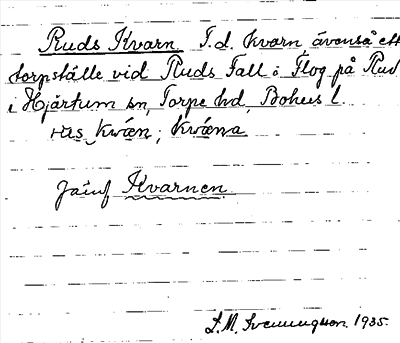 Ruds Kvarn. F.d. kvarn, ävenså ett
torpställe vid Ruds Fall i Flog på Rud
i Hjärtum sn, Torpe hd, Bohus l.
Kvæn; Kvæna
Jämf Kvarnen.
S. M. Svenungsson. 1935.